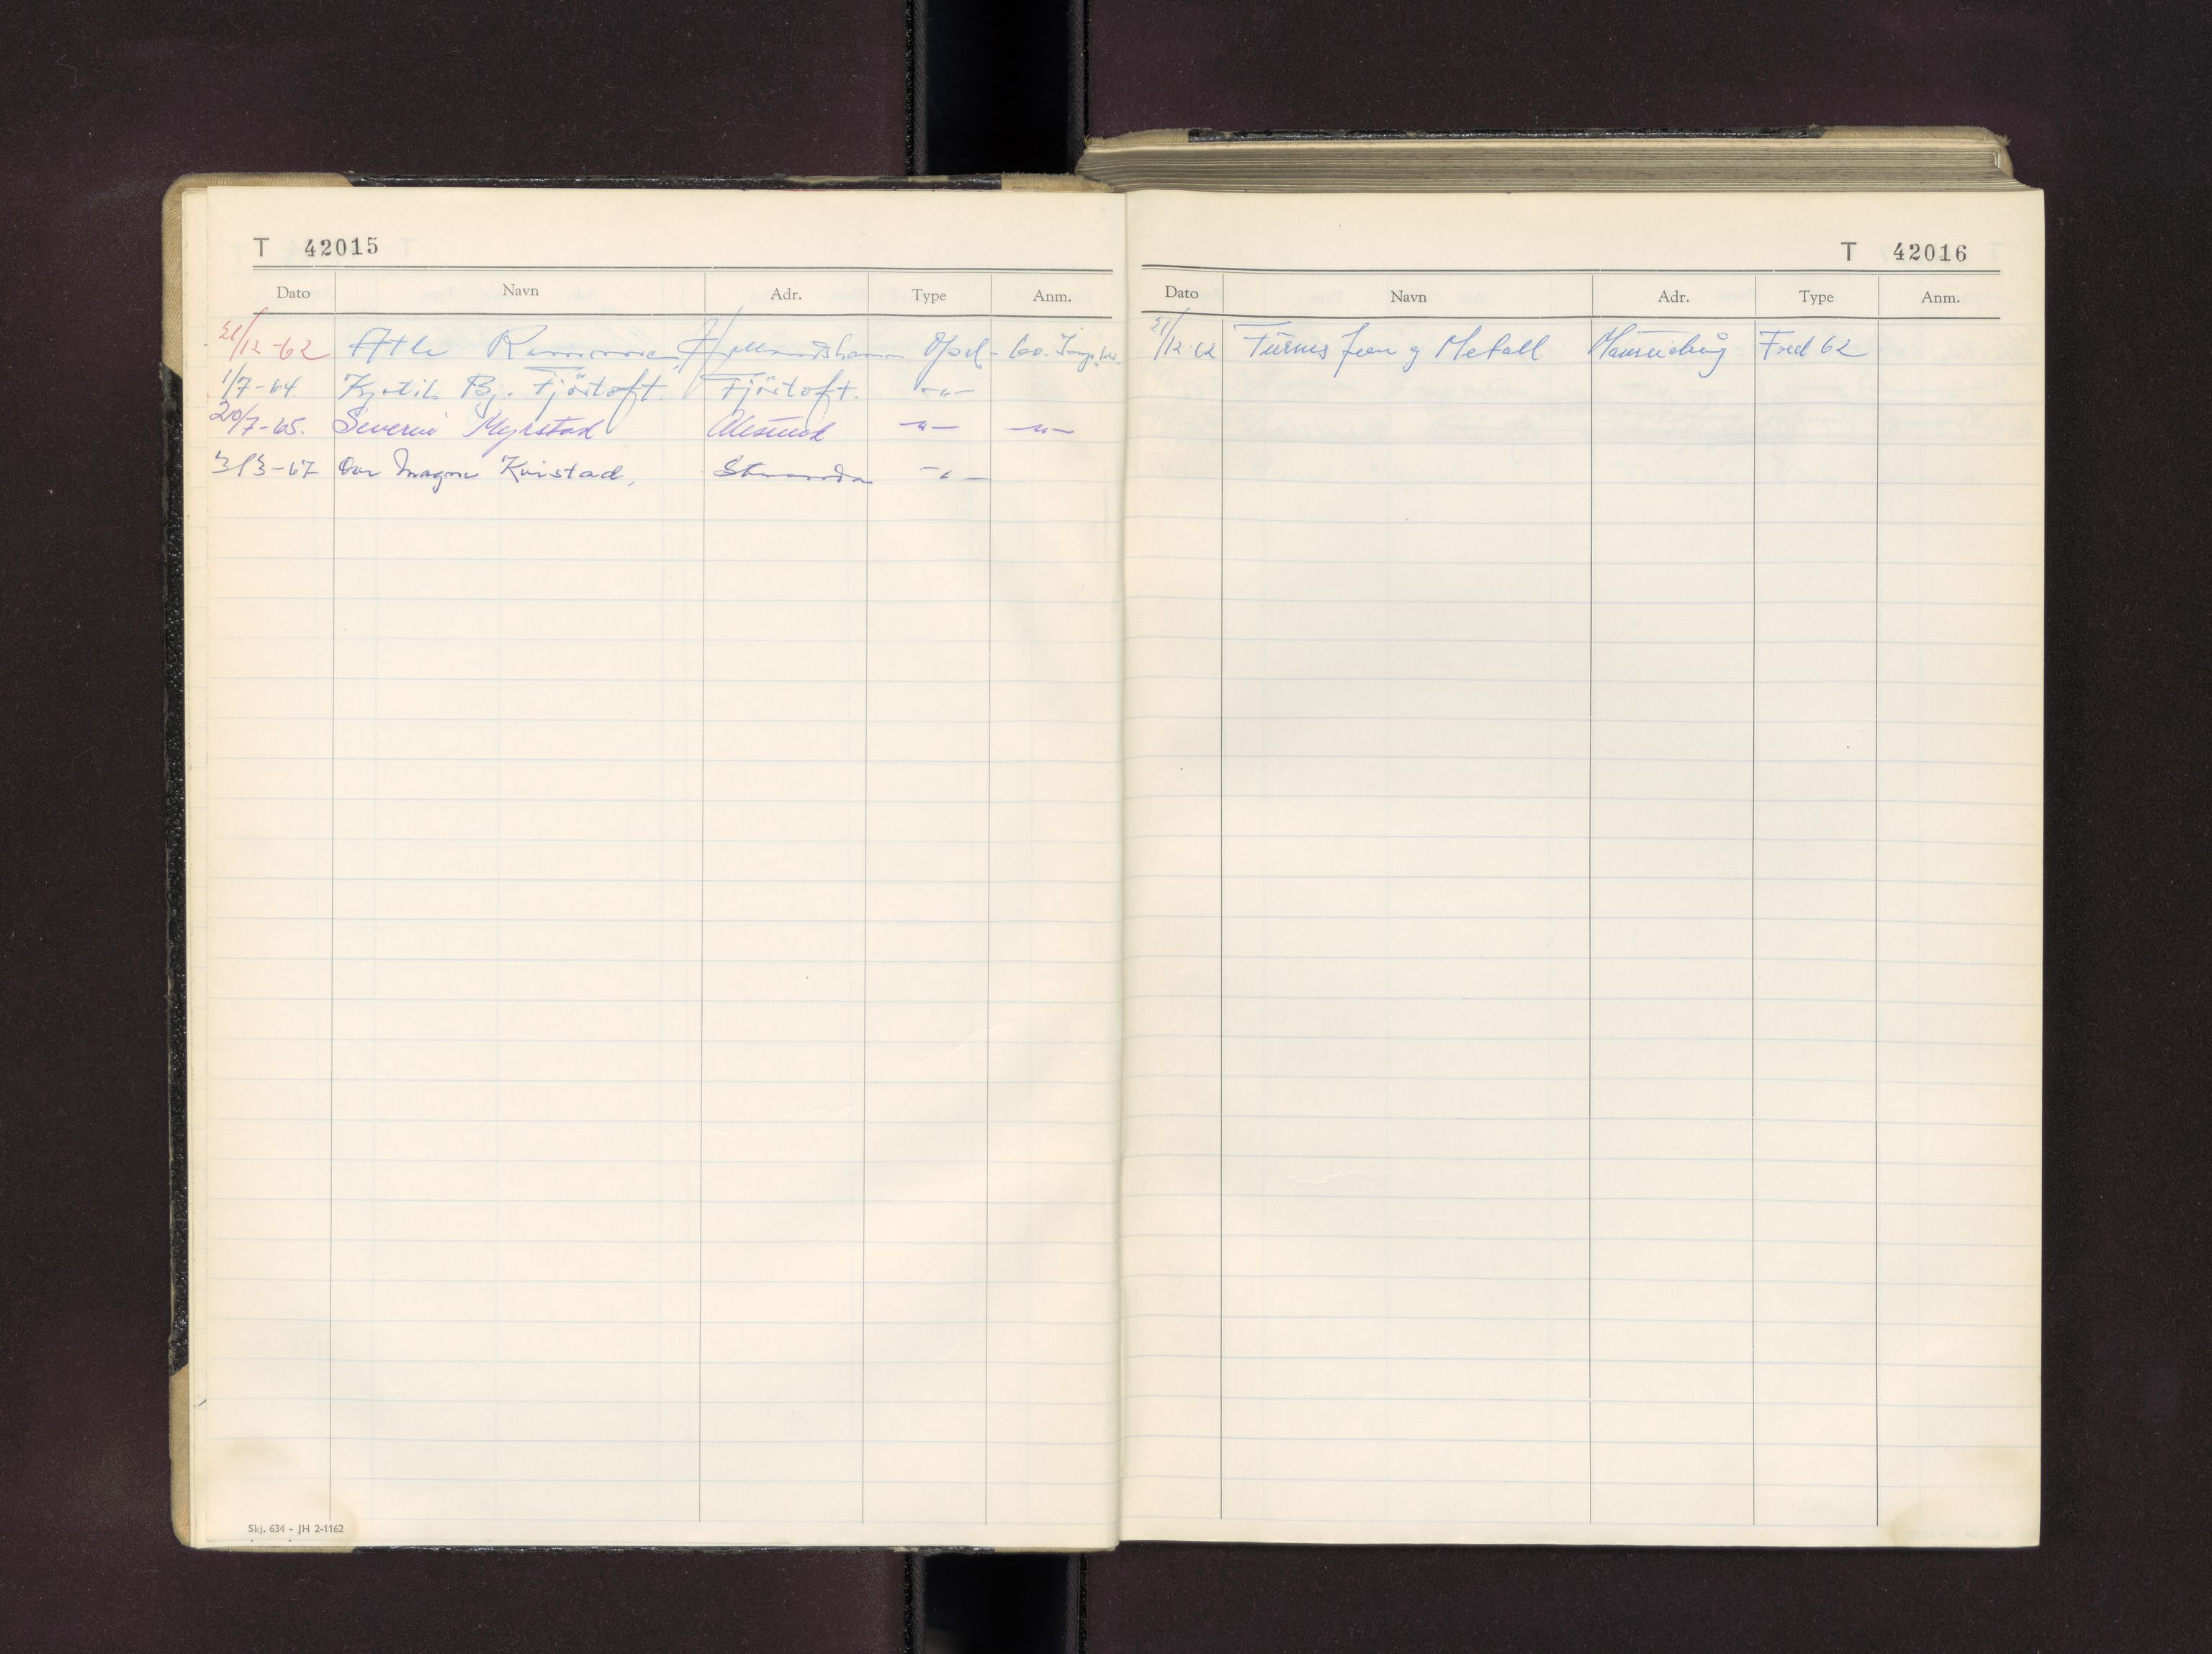 T 42015
Dato Navn Adr. Type Anm.
21/12-62 Atle Opel- 60.
1/7-64. Kjetil Bj. Fjörtoft. Fjörtoft. -"-
20/7-65. Severin Myrstad Ålesund -"- -"-
3/3-67 Ove Magne Kvistad, Stranda -"-
Skj. 634 - JH 2-1162
T 42016
Dato Navn Adr. Type Anm.
21/12-62 Furnes Jern og Metall Ford 62